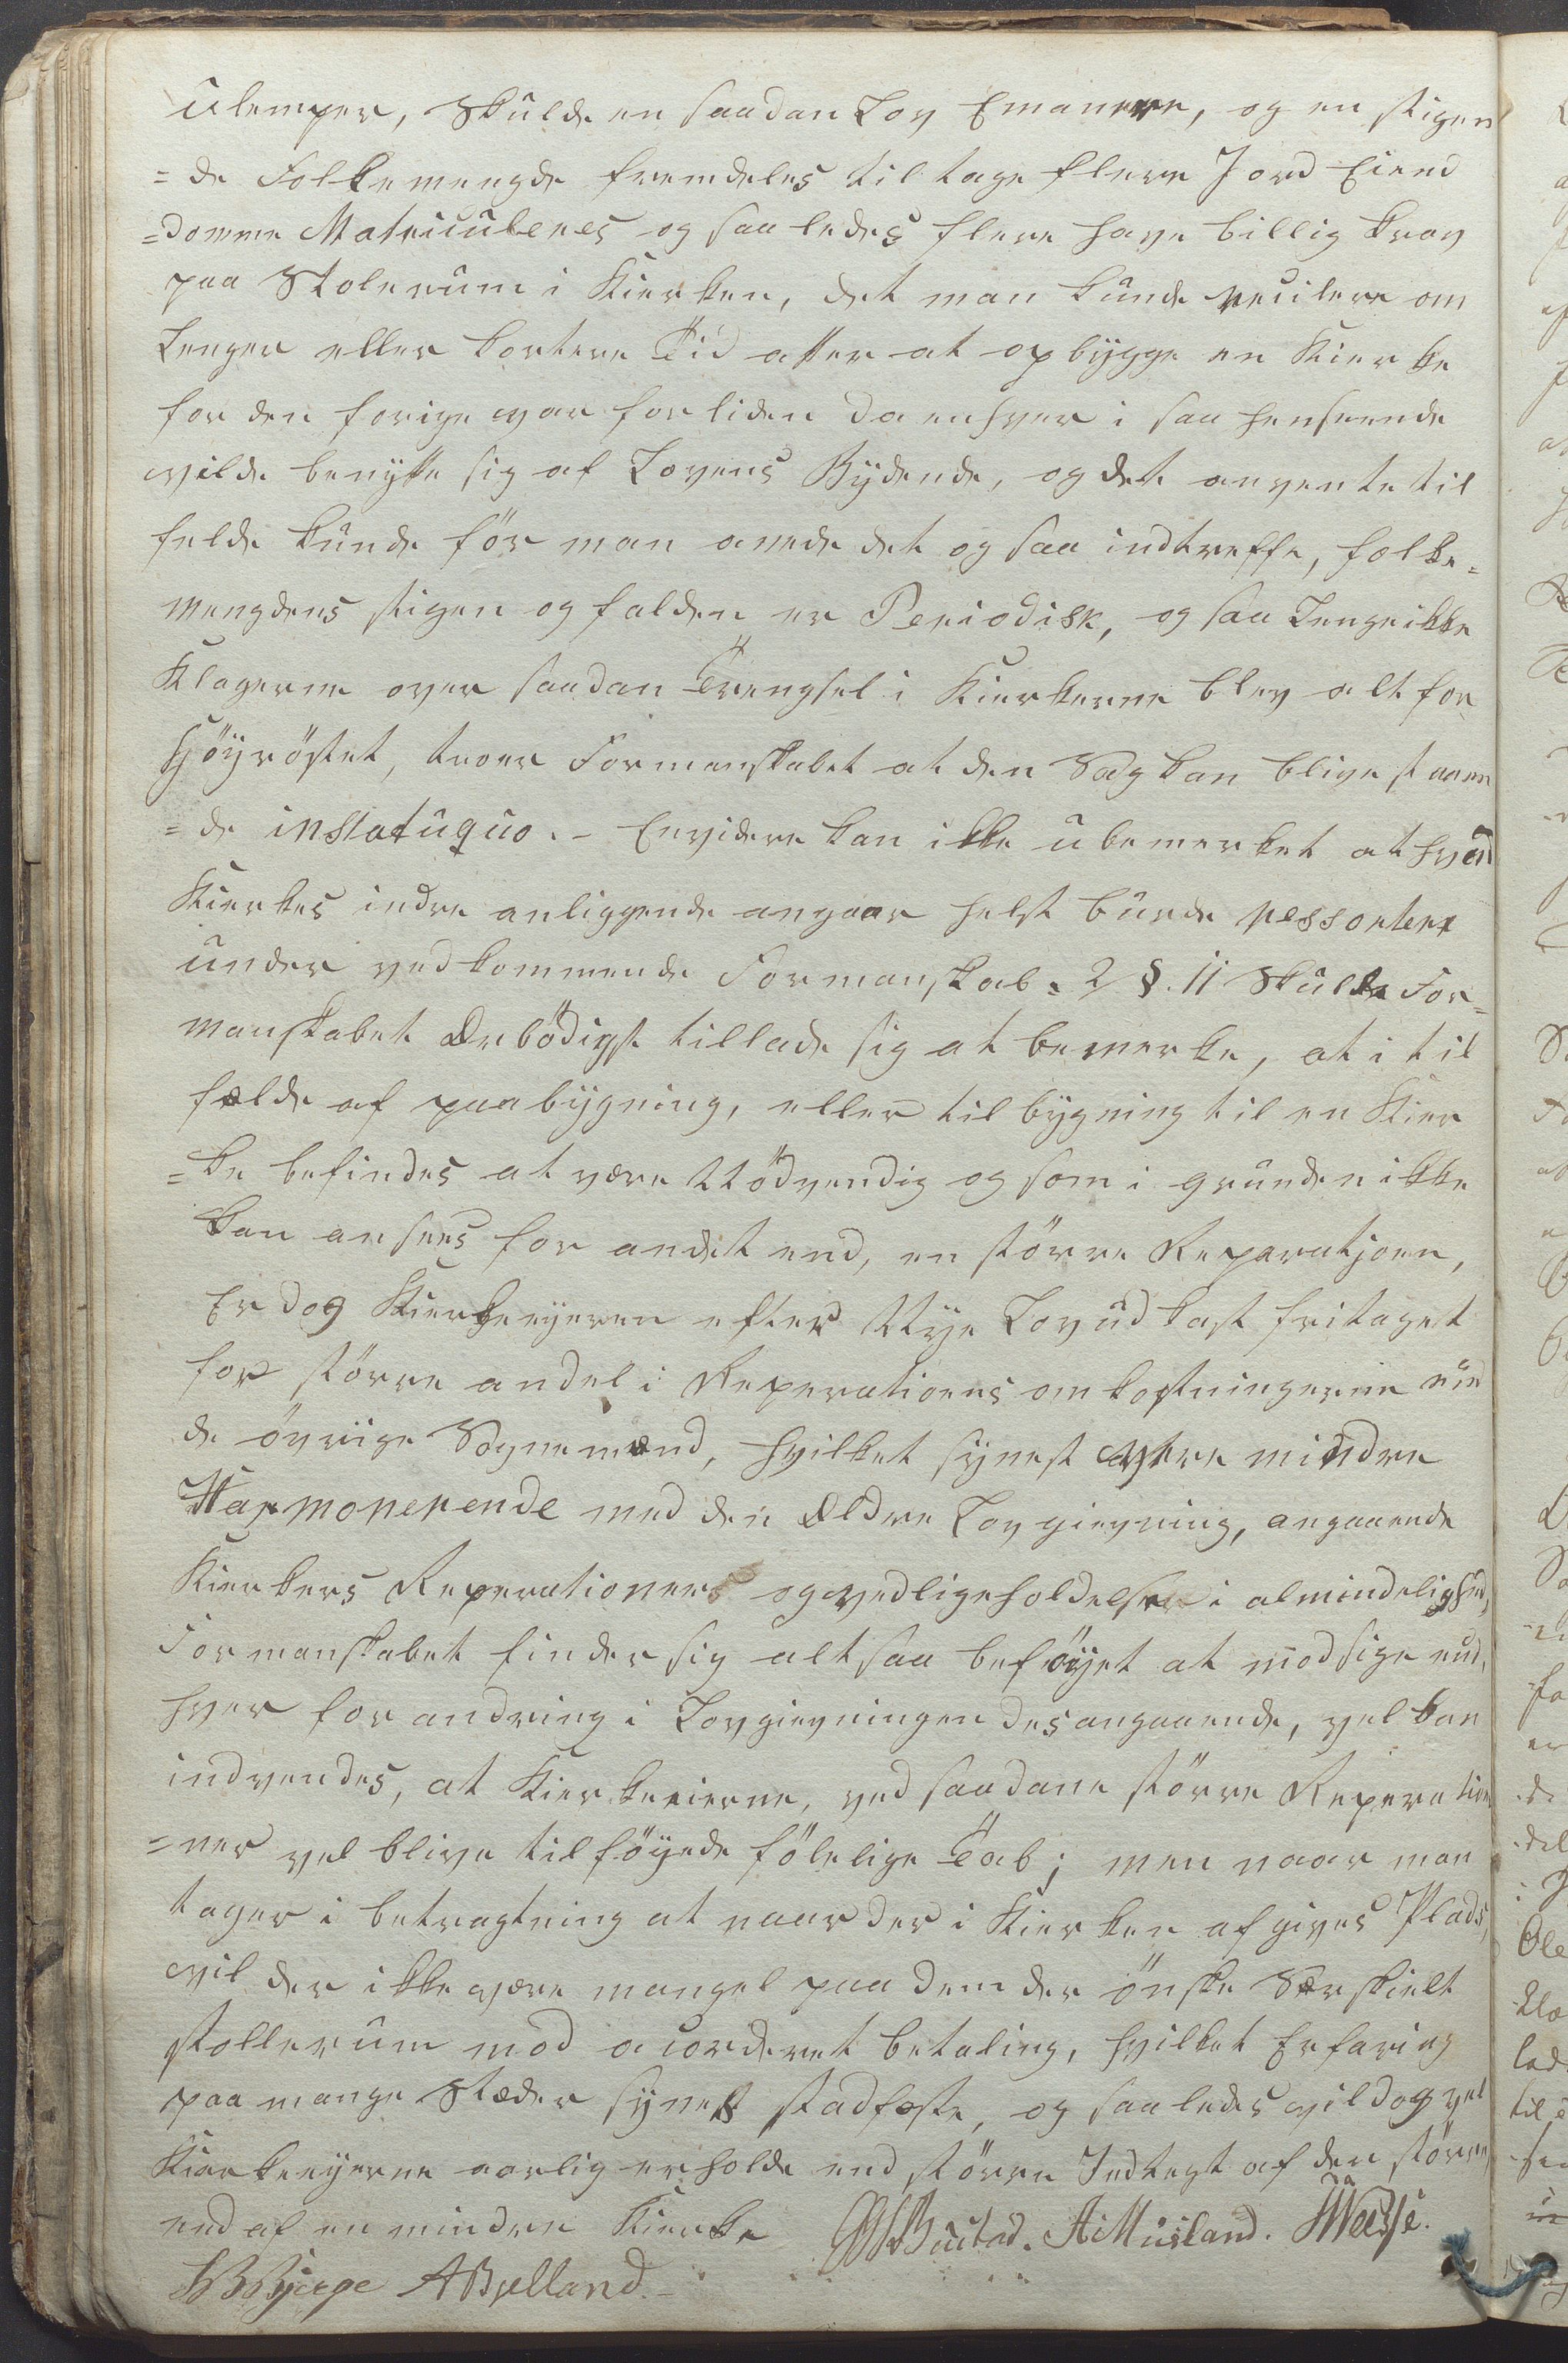 Ulemper, Skulde en saadan Lov Emanere, og en stigen
=de Folkemengde fremdeles til tage flere Jord Eiend
=domme Matriculeres og saaledes flere have billig krav
paa Stolerum i Kierken, det man kunde reculere om
Lenger eller kortere Tid atter at opbygge en Kierke
for den forige var for liden da enhver i saa henseende
vilde benytte sig af Lovens Bydende, og det anvente til
felde kunde för man anede det og saa indtreffe, folke=
mengdens stigen og falden er Periodisk, og saa Lenge ikke
Klagerne over saadan Trengsel i Kierkerne blev alt for
Höyröstet, troer Formanskabet at den Sag kan blive staaen
=de instatuquo. - Envidere kan ikke ubemerket at hvad
Kierkes indre anliggende angaar helst burde ressortere
under vedkommende Formanskab. 2 §. 11 Skulde For=
manskabet Ærbödigst tillade sig at bemerke, at i til
fælde af paabygning, eller tilbygning til en Kier
=ke befindes at være Nödvendig og som i grunden ikke
kan ansees for andet end, en större Reparatjoen,
Er dog Kierkeeyeren efter Nye Lovudkast fritaget
for större andel i Reperationens omkostningerne end
de övrige Sognemænd, hvilket synest være mindre
Harmonerende med den Ældre Lovgievning, angaaende
Kierkers Reperationer og vedligeholdelser i almindelighed,
Formanskabet finder sig altsaa beföyet at modsige end,
hver forandring i Lovgievningen desangaaende, vel kan
indvendes, at Kierkeeierne, ved saadane större Reperatio
=ner vel blive tilföyede fölelige Tab; men naar man
tager i betragtning at naar der i Kierken afgives Plads,
vil der ikke være mangel paa dem der önske Særskielt
stollerum mod acorderet betaling, hvilket Erfaring
paa mange Stæder synes stadfæste, og saaledes vil dog vel
Kierkeeyerne aarlig erholde end större Indtegt af den större,
end af en mindre Kierke Bustad. A Musland. Waesse.
Bjerge ABjelland.